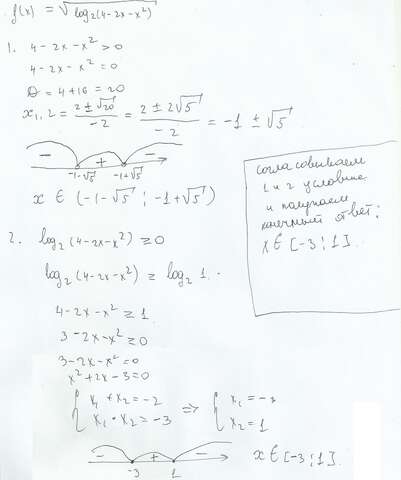 f(x) = √log₂(4-2x-x²)
1. 4-2x-x² > 0
4-2x-x² = 0
D = 4+16 = 20
x₁,₂ = (2 ± √20)/-2 = (2 ± 2√5)/-2 = -1 ± √5
- + -
-1-√5 -1+√5
x ∈ (-1-√5 ; -1+√5)
согласовываем
1 и 2 условие
и получаем
конечный ответ:
x ∈ [-3 ; 1].
2. log₂(4-2x-x²) ≥ 0
log₂(4-2x-x²) ≥ log₂ 1.
4-2x-x² ≥ 1
3-2x-x² ≥ 0
3-2x-x² = 0
x²+2x-3 = 0
{ x₁ + x₂ = -2 ⇒ { x₁ = -3
x₁ · x₂ = -3 x₂ = 1
- + -
-3 1
x ∈ [-3 ; 1].